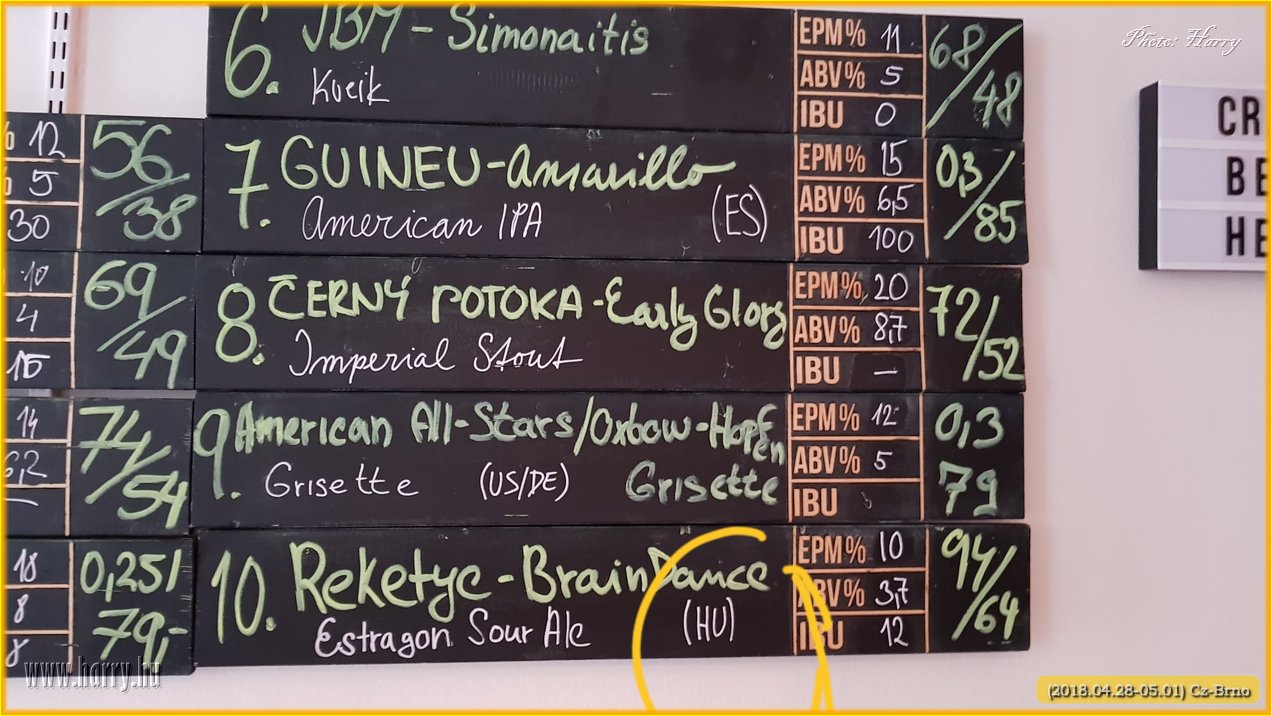 6. JBM - Simonaitis
Kveik
EPM% 11
ABV% 5
IBU 0
68/48
7. GUINEU - Amarillo
American IPA (ES)
EPM% 15
ABV% 6,5
IBU 100
0,3/85
8. ČERNÝ POTOKA - Early Glory
Imperial Stout
EPM% 20
ABV% 8,7
IBU —
72/52
9. American All-Stars/Oxbow-Hopfen
Grisette (US/DE) Grisette
EPM% 12
ABV% 5
IBU
0,3
79
10. Reketye - BrainDance
Estragon Sour Ale (HU)
EPM% 10
ABV% 3,7
IBU 12
94/64
% 12
% 5
30
56/38
10
4
15
69/49
14
6,2
—
74/54
18
8
0,25l/
79,-
CR
BE
HE
Photo: Harry
www.harry.hu
(2018.04.28-05.01) Cz-Brno